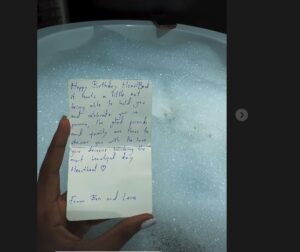 Happy Birthday Heartbeat
it hurts a little not
being able to hold you
and celebrate you in
person, the good friends
and family are there to
shower you with the love
you deserve wishing the
most beautiful day
Heartbeat ♡
From Ben and Love